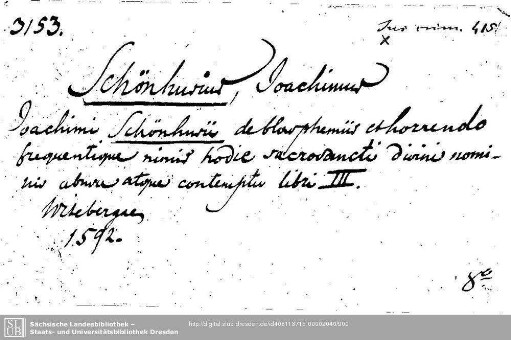 3153.
Jus crim. 415
x
Schönhusius, Joachimus
Joachimi Schönhusii de blasphemiis et horrendo
frequentique nimis hodie sacrosancti divini nomi-
nis abusu atque contemptu libri III.
Witebergae
1592.
8º
Sächsische Landesbibliothek –
Staats- und Universitätsbibliothek Dresden